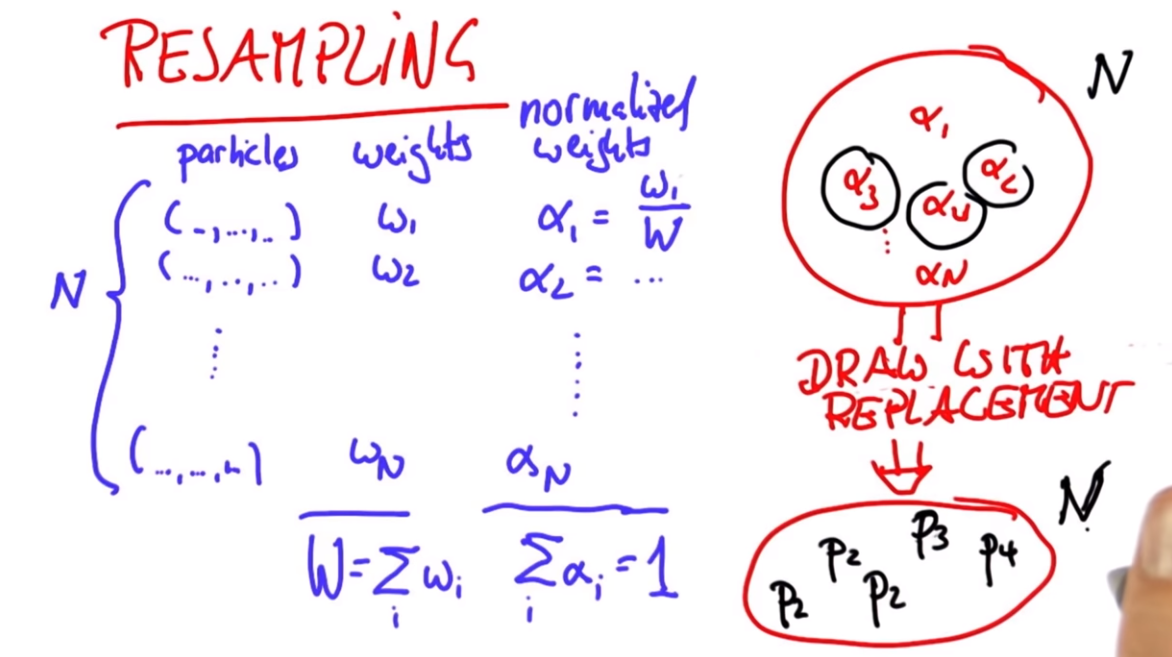 RESAMPLING
particles weights normalized weights
N
(..,...,..) ω1 α1 = ω1/W
(...,...,..) ω2 α2 = ...
(...,...,..) ωN αN
W=∑i ωi ∑i αi = 1
N
α1
α3 α4 α2
αN
DRAW WITH
REPLACEMENT
N
p3
p2 p4
p2 p2